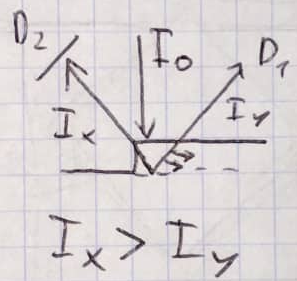 D₂
I₀
D₁
Iₓ
Iᵧ
Iₓ > Iᵧ